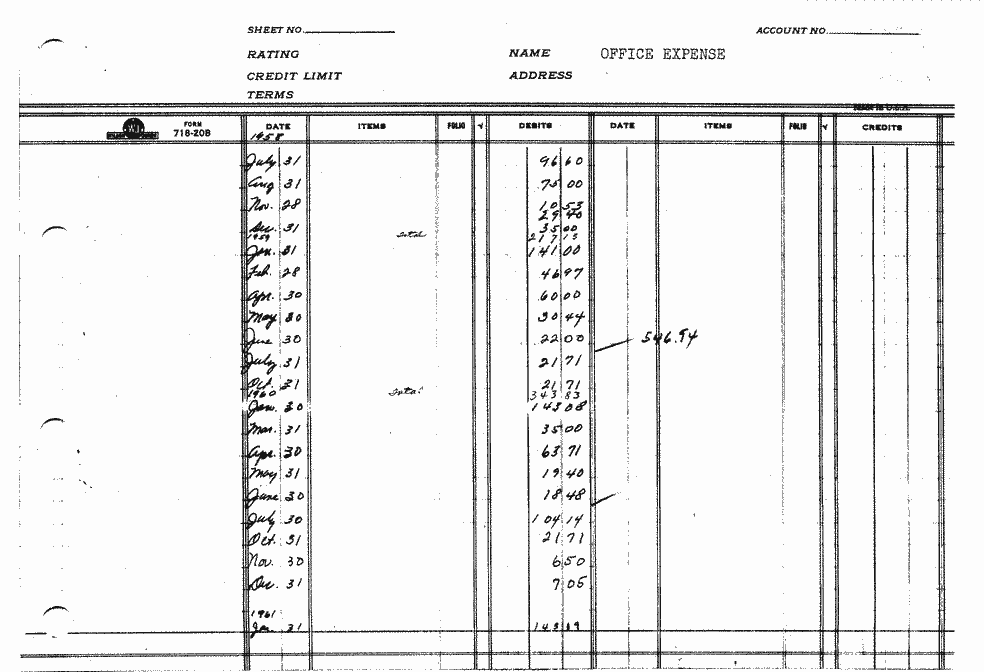 SHEET NO. ACCOUNT NO.
RATING NAME OFFICE EXPENSE
CREDIT LIMIT ADDRESS
TERMS
MADE IN U.S.A.
FORM 718-20B DATE ITEMS FOLIO √ DEBITS DATE ITEMS FOLIO √ CREDITS
1958
July 31 96 60
Aug 31 75 00
Nov. 28 10 53
29 40
Dec. 31 35 00
1959 total 217 13
Jan. 31 141 00
Feb. 28 46 97
Apr. 30 60 00
May 30 30 44
June 30 22 00 546.94
July 31 21 71
Oct. 31 21 71
1960 total 343 83
Jan. 30 143 08
Mar. 31 35 00
Apr. 30 63 71
May 31 19 40
June 30 18 48
July 30 104 14
Oct. 31 21 71
Nov. 30 6 50
Dec. 31 7 05
1961
Jan. 31 143 19